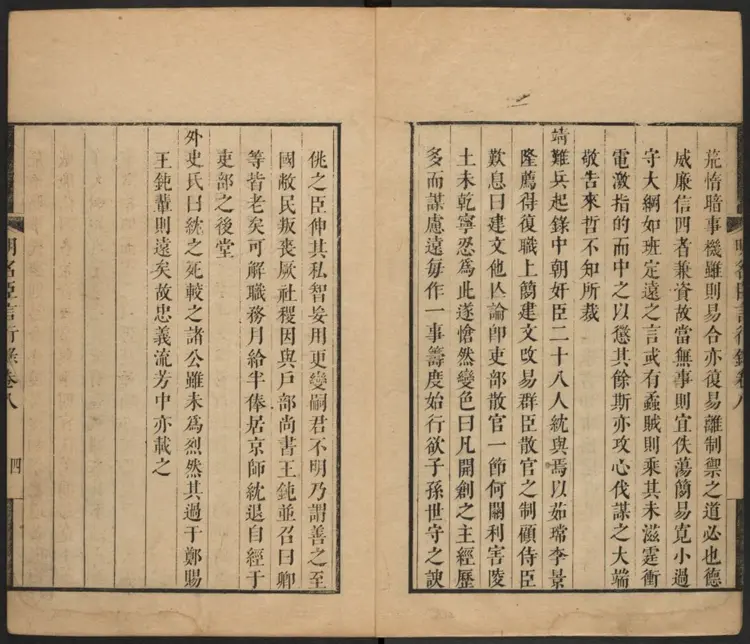 荒惰暗事機雖則易合亦復易離制禦之道必也德
威廉信四者兼資故當無事則宜佚蕩簡易寬小過
守大綱如班定遠之言或有蟊賊則乘其未滋霆衝
電激指的而中之以懲其餘斯亦攻心伐謀之大端
敬告來哲不知所裁
靖難兵起錄中朝奸臣二十八人紞與焉以茹瑺李景
隆薦得復職上簡建文改易群臣散官之制顧侍臣
歎息曰建文他亾論即吏部散官一節何關利害陵
土未乾寧忍為此遂愴然變色曰凡開創之主經歷
多而謀慮遠每作一事籌度始行欲子孫世守之諛
佻之臣伸其私智妄用更變嗣君不明乃謂善之至
國敝民叛喪厥社稷因與戶部尚書王鈍並召曰卿
等皆老矣可解職務月給半俸居京師紞退自經于
吏部之後堂
外史氏曰紞之死較之諸公雖未為烈然其過于鄭賜
王鈍輩則遠矣故忠義流芳中亦載之
明名臣言行錄卷八
四